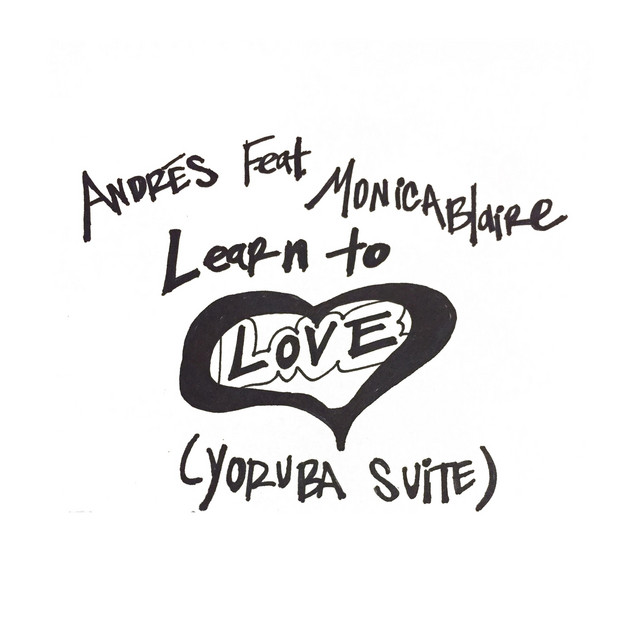 ANDRÉS Feat MONiCA Blaire
Learn to
LOVE
(YORUBA SUiTE)